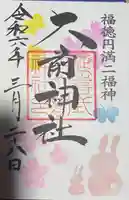 福徳円満二福神
大前神社
令和六年三月二八日